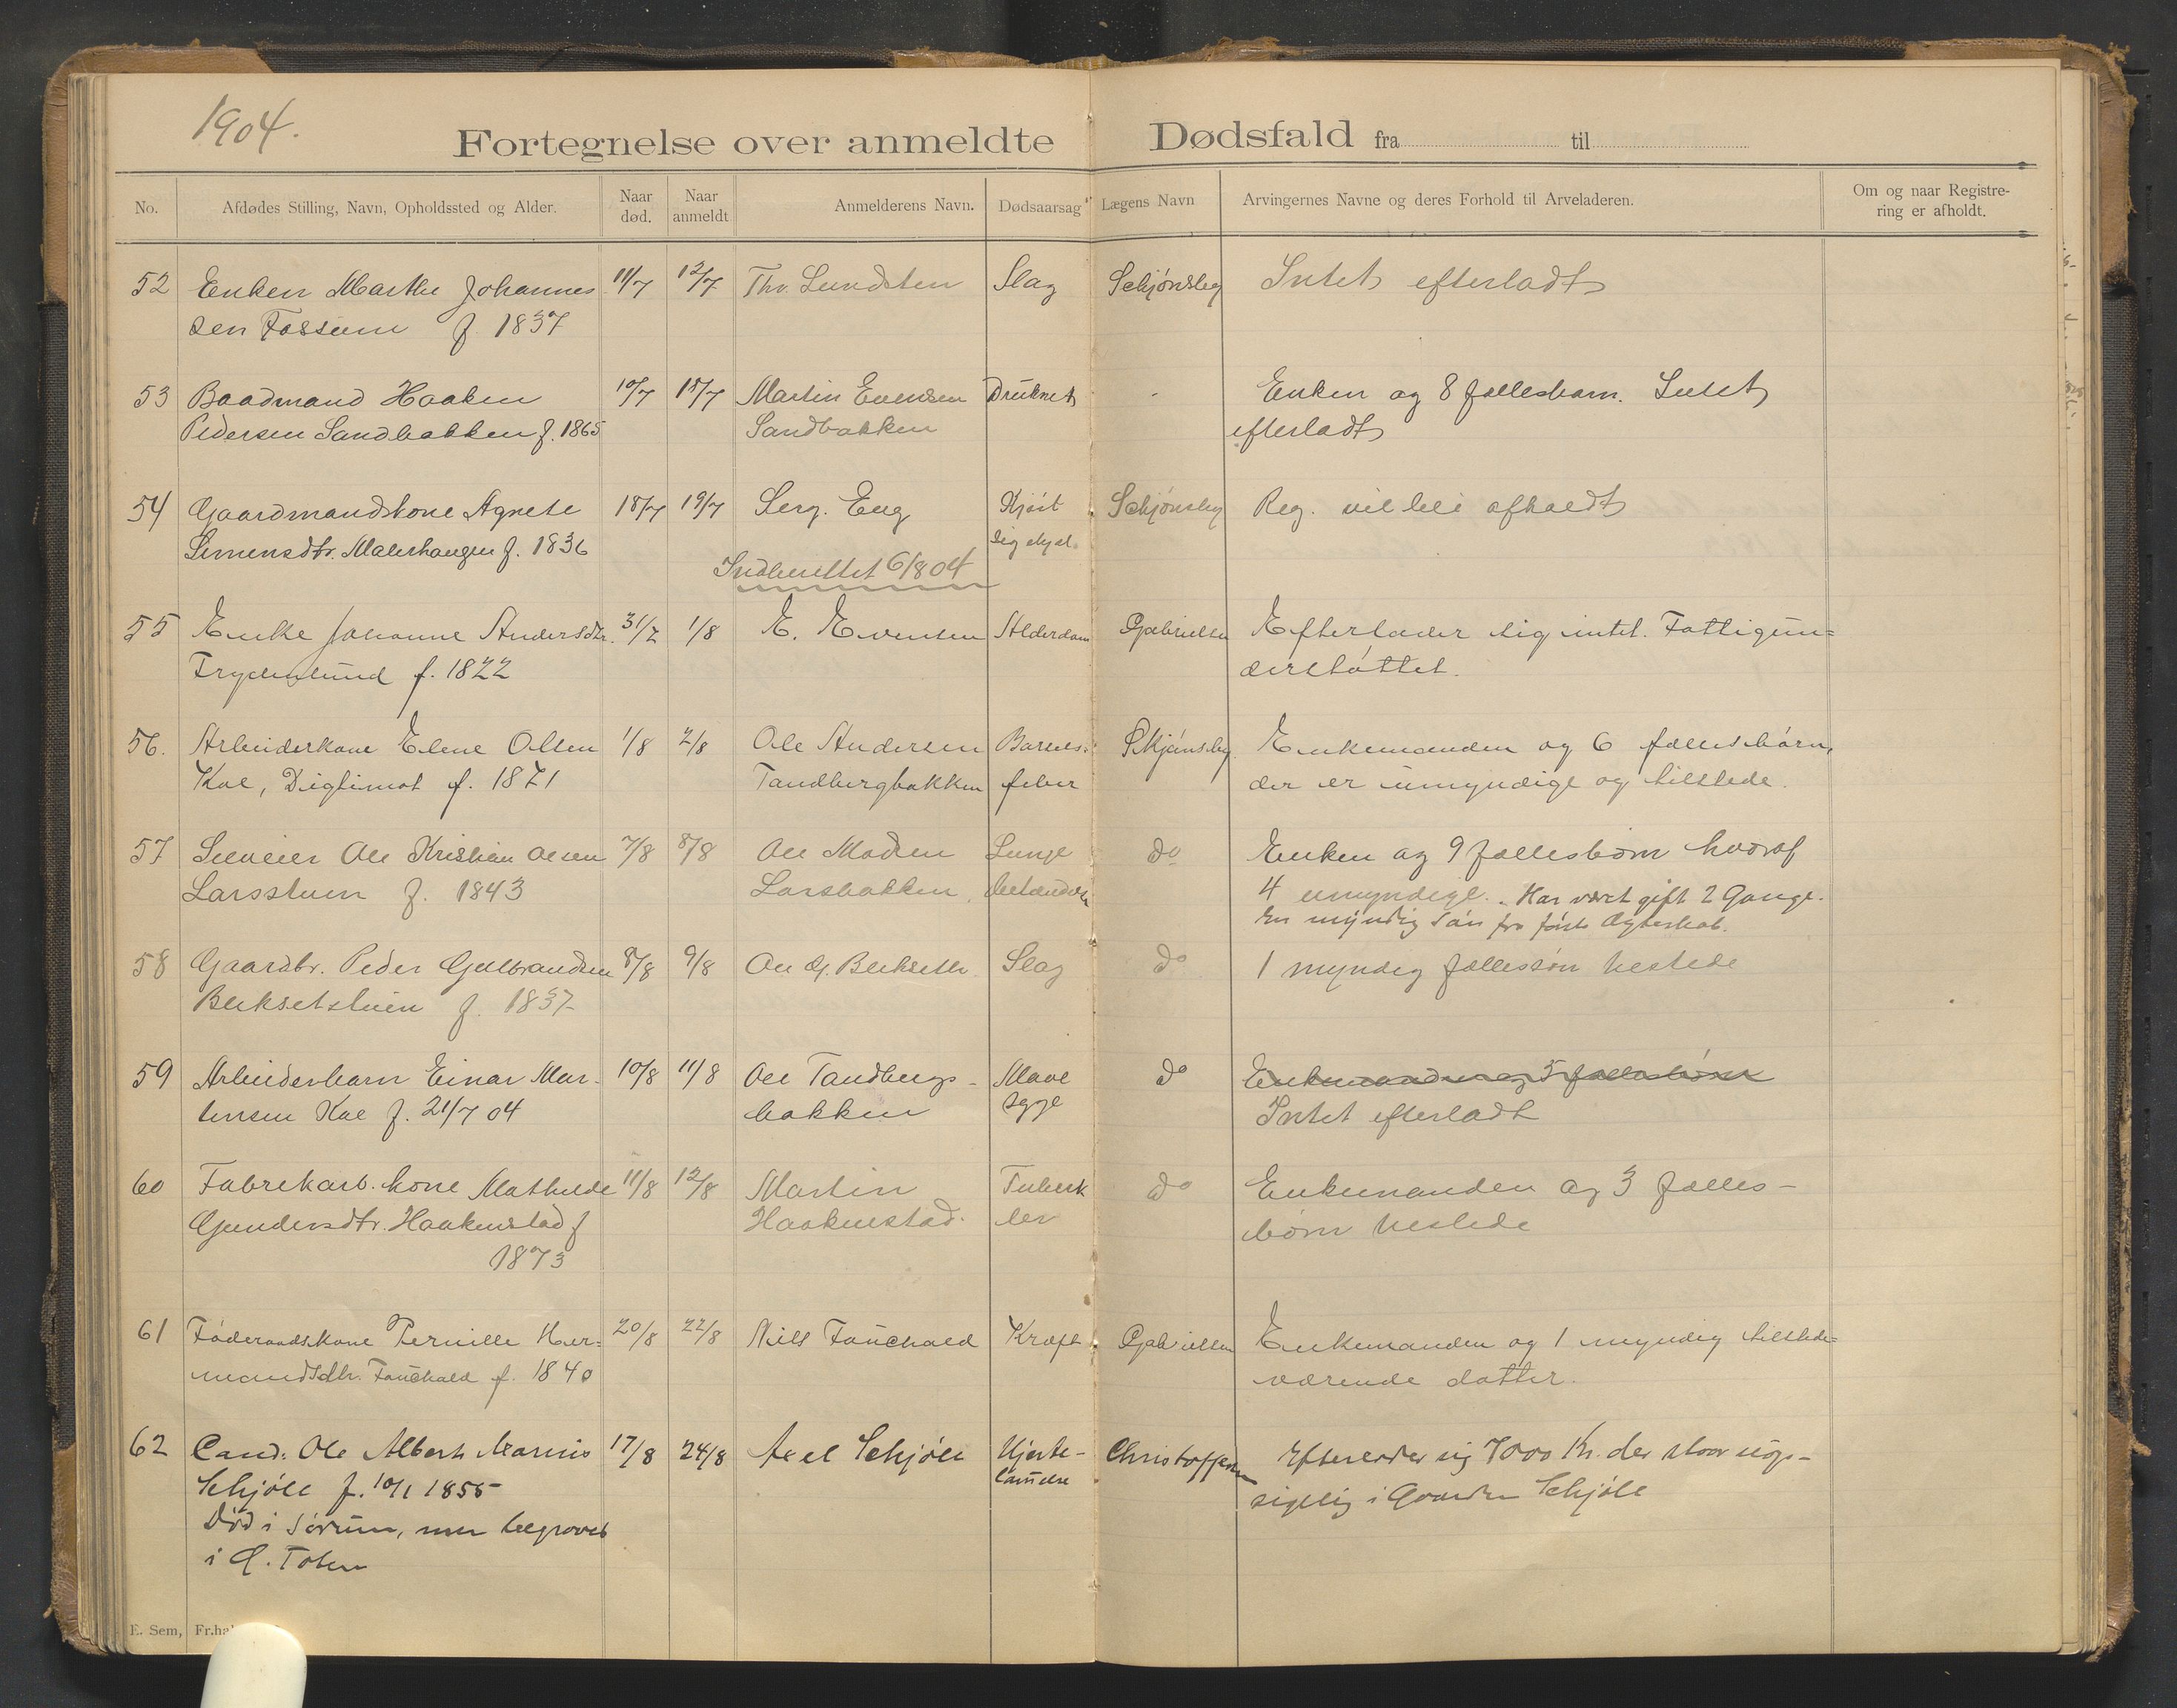 1904.
Fortegnelse over anmeldte Dødsfald fra til
No. Afdødes Stilling, Navn, Opholdssted og Alder. Naar død. Naar anmeldt Anmelderens Navn. Dødsaarsag Lægens Navn Arvingernes Navne og deres Forhold til Arveladeren. Om og naar Registrering er afholdt.
52 Enken Marthe Johannes 11/7 12/7 Thv. Lundsten Slag Schjønsby Intet efterladt
sen Fossum f. 1837
53 Baadmand Haaken 10/7 18/7 Martin Evensen Druknet - Enken og 8 fællesbarn. Intet
Pedersen Sandbakken f. 1865 Sandbakken efterladt
54 Gaardmandskone Agnete 18/7 19/7 Serg. Eng Kjørt Schjønsby Reg. vil bli afholdt
Simensdtr. Malerhaugen f. 1836 sig ihjel
Indberettet 6/8 04
55 Enke Johanne Andersdtr. 31/7 1/8 E. Evensen Alderdom Gabrielsen Efterlader sig intet. Fattigun=
Frydenlund f. 1822 derstøttet.
56. Arbeiderkone Elene Olsen 1/8 2/8 Ole Andersen Barsels- Skjønsby Enkemanden og 6 fællesbørn,
Kol, Diglimot f. 1871 Tandbergbakken feber der er umyndige og tilstede.
57 Selveier Ole Kristian Olsen 7/8 8/8 Ole Madsen Lunge do Enken og 9 fællesbørn hvoraf
Larsstuen f. 1843 Larsbakken betændelse 4 umyndige. Har været gift 2 Gange.
En myndig søn fra første Ægteskab.
58 Gaardbr. Peder Gulbrandsen 8/8 9/8 Ole G. Blekseth Slag do 1 myndig fællessøn tilstede
Bleksetstuen f. 1837
59 Arbeiderbarn Einar Mar- 10/8 11/8 Ole Tandbergs- Mave do Enkemanden og 5 fællesbørn
tinsen Kol f. 21/7 04 bakken syge Intet efterladt
60 Fabrikarb. kone Mathilde 11/8 12/8 Martin Tuberk do Enkemanden og 3 fælles-
Gundersdtr. Haakenstad f Haakenstad. ler børn tilstede
1873
61 Føderaadskone Pernille Her= 20/8 22/8 Nils Fauchald Kræft Gabrielsen Enkemanden og 1 myndig tilstede=
mandsdtr. Fauchald f. 1840 værende datter.
62 Cand. Ole Albert Marius 17/8 24/8 Axel Schjøll Hjerte- Christoffersen Efterlader sig 7000 Kr. der staar uop-
Schjøll f. 10/1 1855 lammelse sigelig i Gaarden Schjøll
Død i Sørum, men begravet
i Ø. Toten
E. Sem, Fr.hal